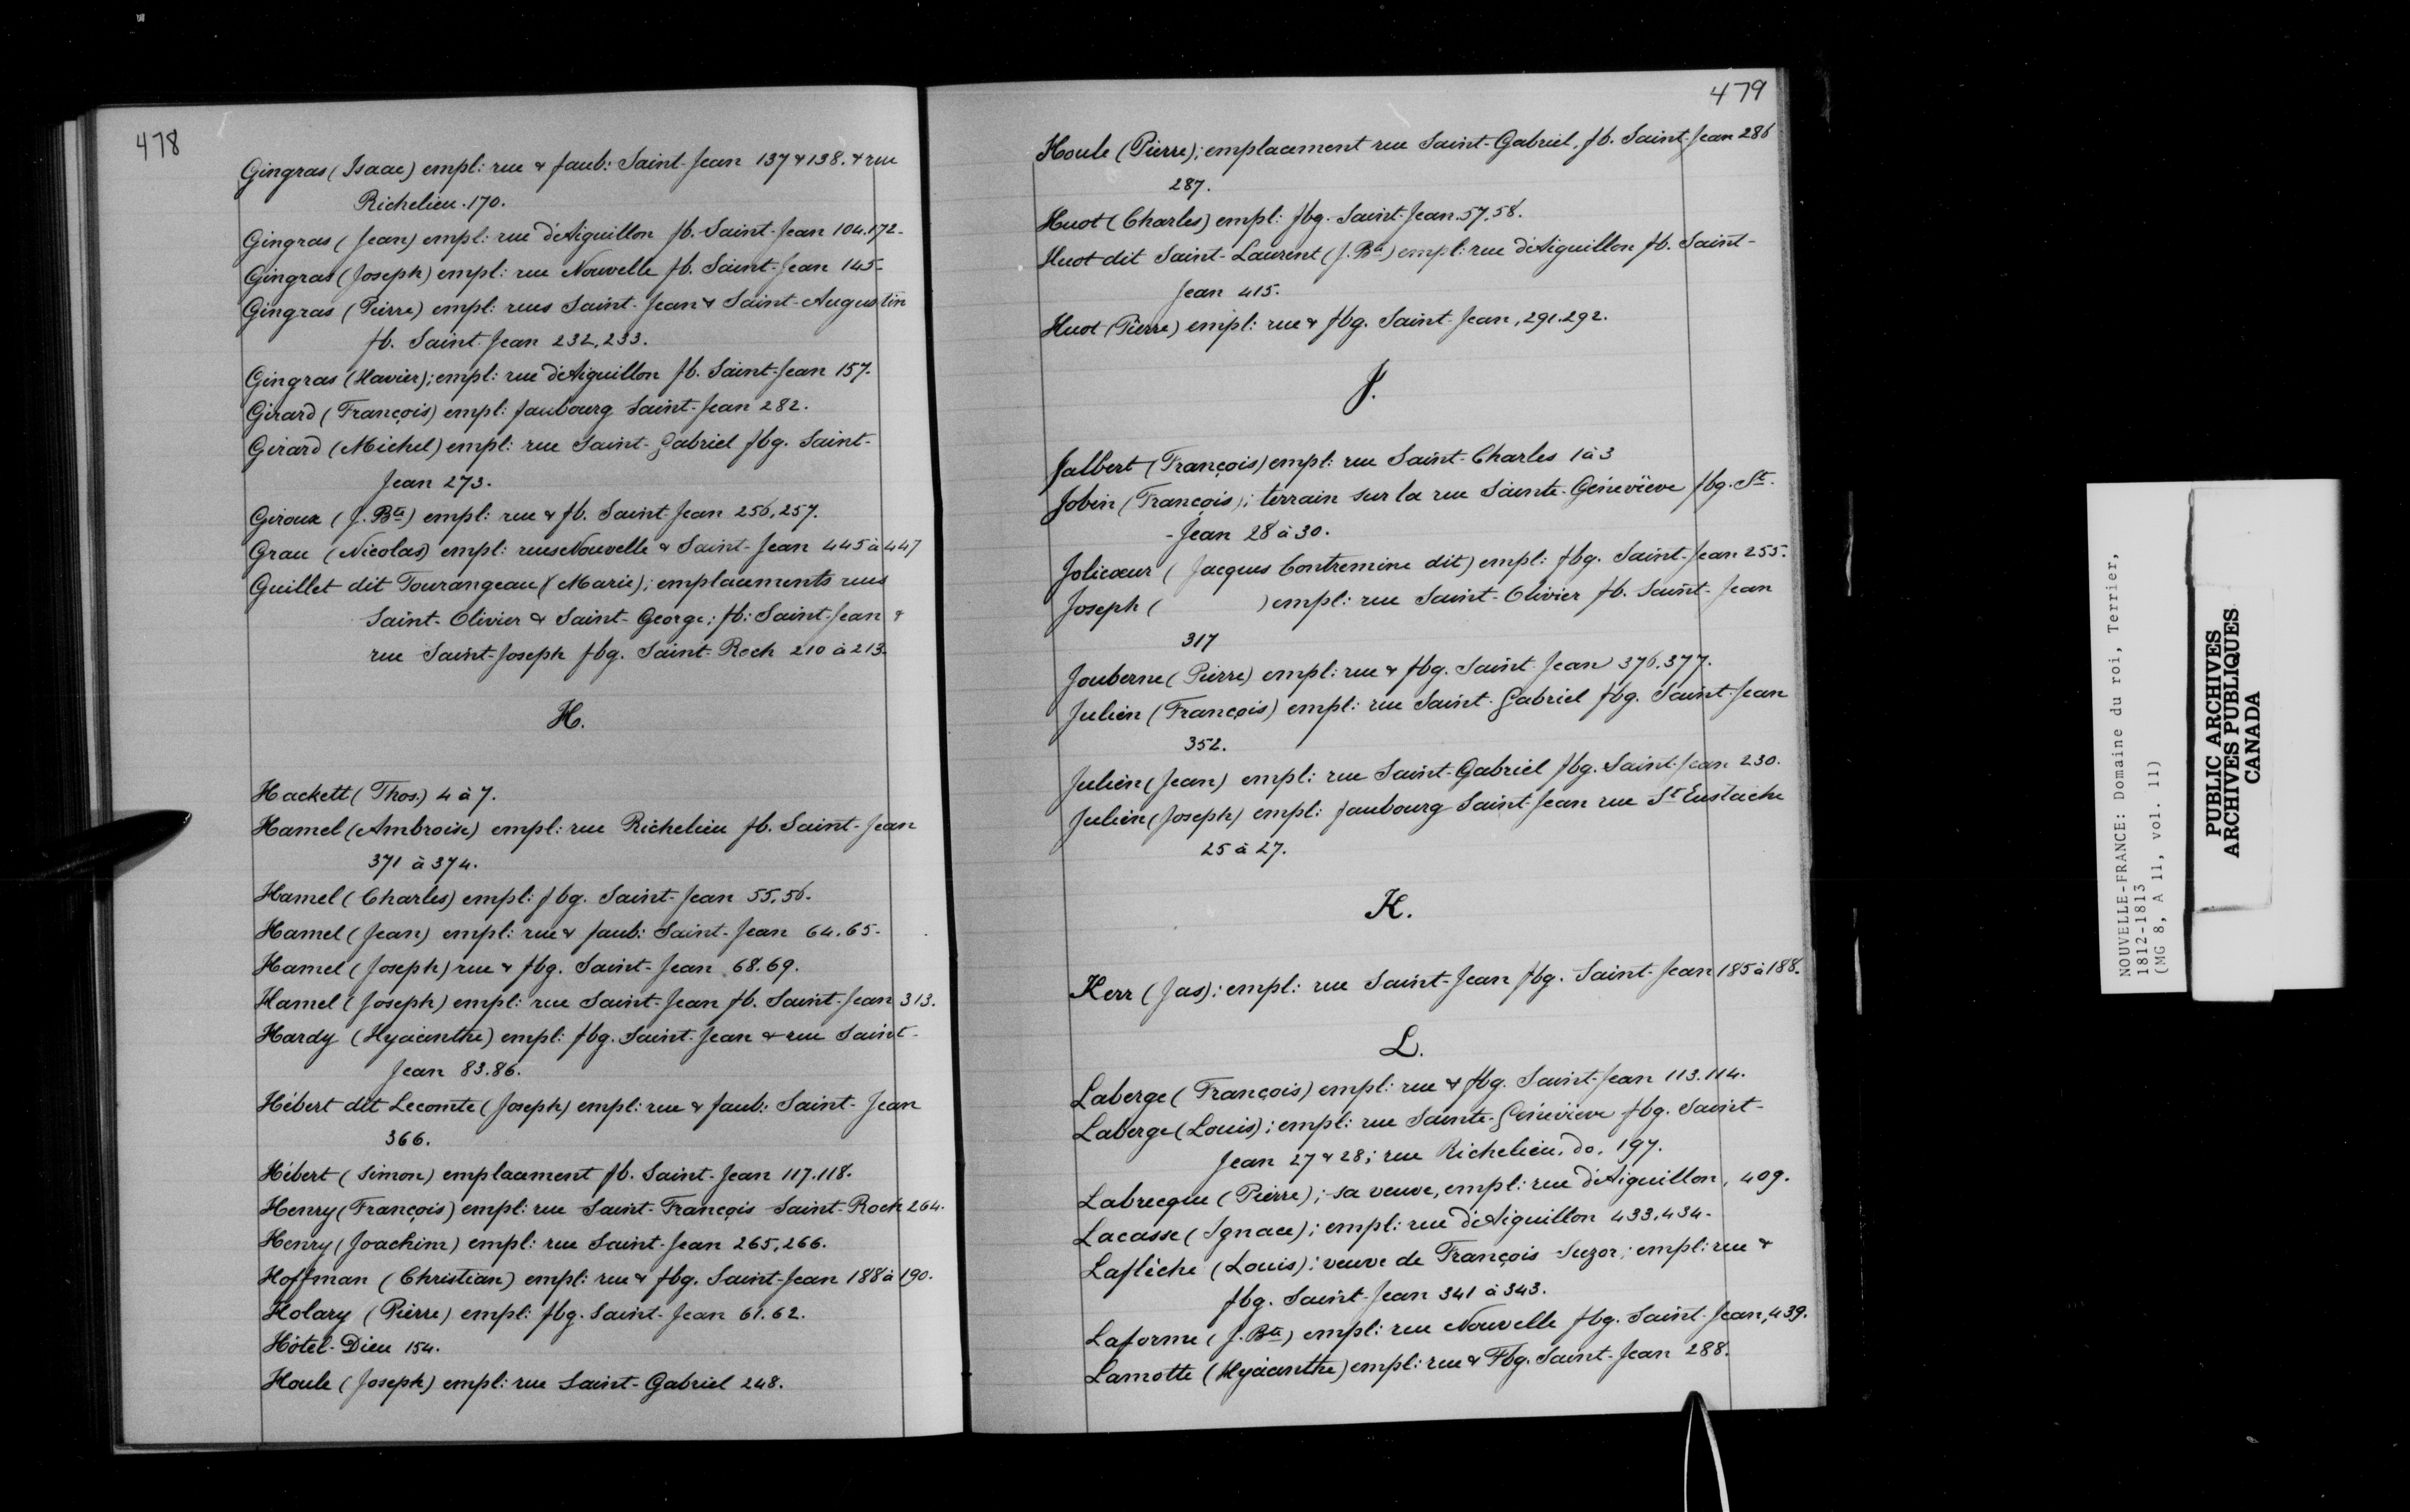 478
Gingras (Isaac) empl: rue & faub: Saint-Jean 137 & 138. & rue
Richelieu. 170.
Gingras (Jean) empl: rue d'Aiguillon fb. Saint-Jean 104.172-
Gingras (Joseph) empl: rue Nouvelle fb. Saint-Jean 145-
Gingras (Pierre) empl: rues Saint-Jean & Saint-Augustin
fb. Saint-Jean 232, 233.
Gingras (Xavier); empl: rue d'Aiguillon fb. Saint-Jean 157-
Girard (François) empl: faubourg Saint-Jean 282.
Girard (Michel) empl: rue Saint-Gabriel fbg. Saint-
Jean 273.
Giroux (J. Bte) empl: rue & fb. Saint-Jean 256, 257.
Grau (Nicolas) empl: rues Nouvelle & Saint-Jean 445 à 447
Guillet dit Tourangeau (Marie); emplacements rues
Saint-Olivier & Saint-George; fb: Saint-Jean &
rue Saint-Joseph fbg. Saint-Roch 210 à 213.
H.
Hackett (Thos.) 4 à 7.
Hamel (Ambroise) empl: rue Richelieu fb. Saint-Jean
371 à 374.
Hamel (Charles) empl: fbg. Saint-Jean 55, 56.
Hamel (Jean) empl: rue & faub: Saint-Jean 64.65-
Hamel (Joseph) rue & fbg. Saint-Jean 68.69.
Hamel (Joseph) empl: rue Saint-Jean fb. Saint-Jean 313.
Hardy (Hyacinthe) empl: fbg. Saint-Jean & rue Saint-
Jean 83.86.
Hébert dit Lecomte (Joseph) empl: rue & faub: Saint-Jean
366.
Hébert (Simon) emplacement fb. Saint-Jean 117.118.
Henry (François) empl: rue Saint-François Saint-Roch 264.
Henry (Joachim) empl: rue Saint-Jean 265, 266.
Hoffman (Christian) empl: rue & fbg. Saint-Jean 188 à 190.
Holary (Pierre) empl: fbg. Saint-Jean 61.62.
Hôtel-Dieu 154.
Houle (Joseph) empl: rue Saint-Gabriel 248.
479
Houle (Pierre); emplacement rue Saint-Gabriel, fb. Saint-Jean 286
287.
Huot (Charles) empl: fbg. Saint-Jean. 57, 58.
Huot dit Saint-Laurent (J. Bte) empl: rue d'Aiguillon fb. Saint-
Jean 415.
Huot (Pierre) empl: rue & fbg. Saint-Jean, 291.292.
J.
Jalbert (François) empl: rue Saint-Charles 1 à 3
Jobin (François); terrain sur la rue Sainte-Geneviève fbg. St-
-Jean 28 à 30.
Jolicoeur (Jacques Contremine dit) empl: fbg. Saint-Jean 255.
Joseph ( ) empl: rue Saint-Olivier fb. Saint-Jean
317
Jouberne (Pierre) empl: rue & fbg. Saint-Jean 376.377.
Julien (François) empl: rue Saint-Gabriel fbg. Saint-Jean
352.
Julien (Jean) empl: rue Saint-Gabriel fbg. Saint-Jean 230.
Julien (Joseph) empl: faubourg Saint-Jean rue St Eustache
25 à 27.
K.
Kerr (Jas); empl: rue Saint-Jean fbg. Saint-Jean 185 à 188.
L.
Laberge (François) empl: rue & fbg. Saint-Jean 113.114.
Laberge (Louis); empl: rue Sainte-Geneviève fbg. Saint-
Jean 27 & 28; rue Richelieu, do, 197.
Labrecque (Pierre); sa veuve, empl: rue d'Aiguillon, 409.
Lacasse (Ignace); empl: rue d'Aiguillon 433.434-
Laflèche (Louis); veuve de François Suzor; empl: rue &
fbg. Saint-Jean 341 à 343.
Laforme (J. Bte) empl: rue Nouvelle fbg. Saint-Jean, 439.
Lamotte (Hyacinthe) empl: rue & Fbg. Saint-Jean 288.
NOUVELLE-FRANCE: Domaine du roi, Terrier,
1812-1813
(MG 8, A 11, vol. 11)
PUBLIC ARCHIVES
ARCHIVES PUBLIQUES
CANADA